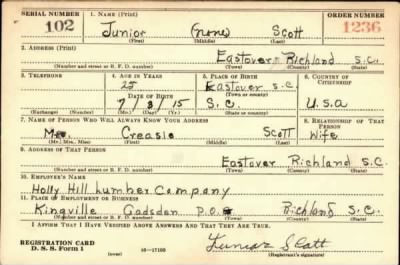 SERIAL NUMBER 1. NAME (Print) ORDER NUMBER
102 Junior (none) Scott 1236
(First) (Middle) (Last)
2. ADDRESS (Print)
Eastover Richland S.C.
(Number and street or R. F. D. number) (Town) (County) (State)
3. TELEPHONE 4. AGE IN YEARS 5. PLACE OF BIRTH 6. COUNTRY OF CITIZENSHIP
25 Eastover S.C.
DATE OF BIRTH (Town or county)
7 / 3 / 15 S.C. U.S.A
(Exchange) (Number) (Mo.) (Day) (Yr.) (State or country)
7. NAME OF PERSON WHO WILL ALWAYS KNOW YOUR ADDRESS 8. RELATIONSHIP OF THAT PERSON
Mrs. Creasie Scott Wife
(Mr., Mrs., Miss) (First) (Middle) (Last)
9. ADDRESS OF THAT PERSON
Eastover Richland S.C.
(Number and street or R. F. D. number) (Town) (County) (State)
10. EMPLOYER'S NAME
Holly Hill Lumber Company
11. PLACE OF EMPLOYMENT OR BUSINESS
Kingville Gadsden P.O. Richland S.C.
(Number and street or R. F. D. number) (Town) (County) (State)
I AFFIRM THAT I HAVE VERIFIED ABOVE ANSWERS AND THAT THEY ARE TRUE.
REGISTRATION CARD
D. S. S. Form 1 (over) 16—17105 Junior Scott
(Registrant's signature)